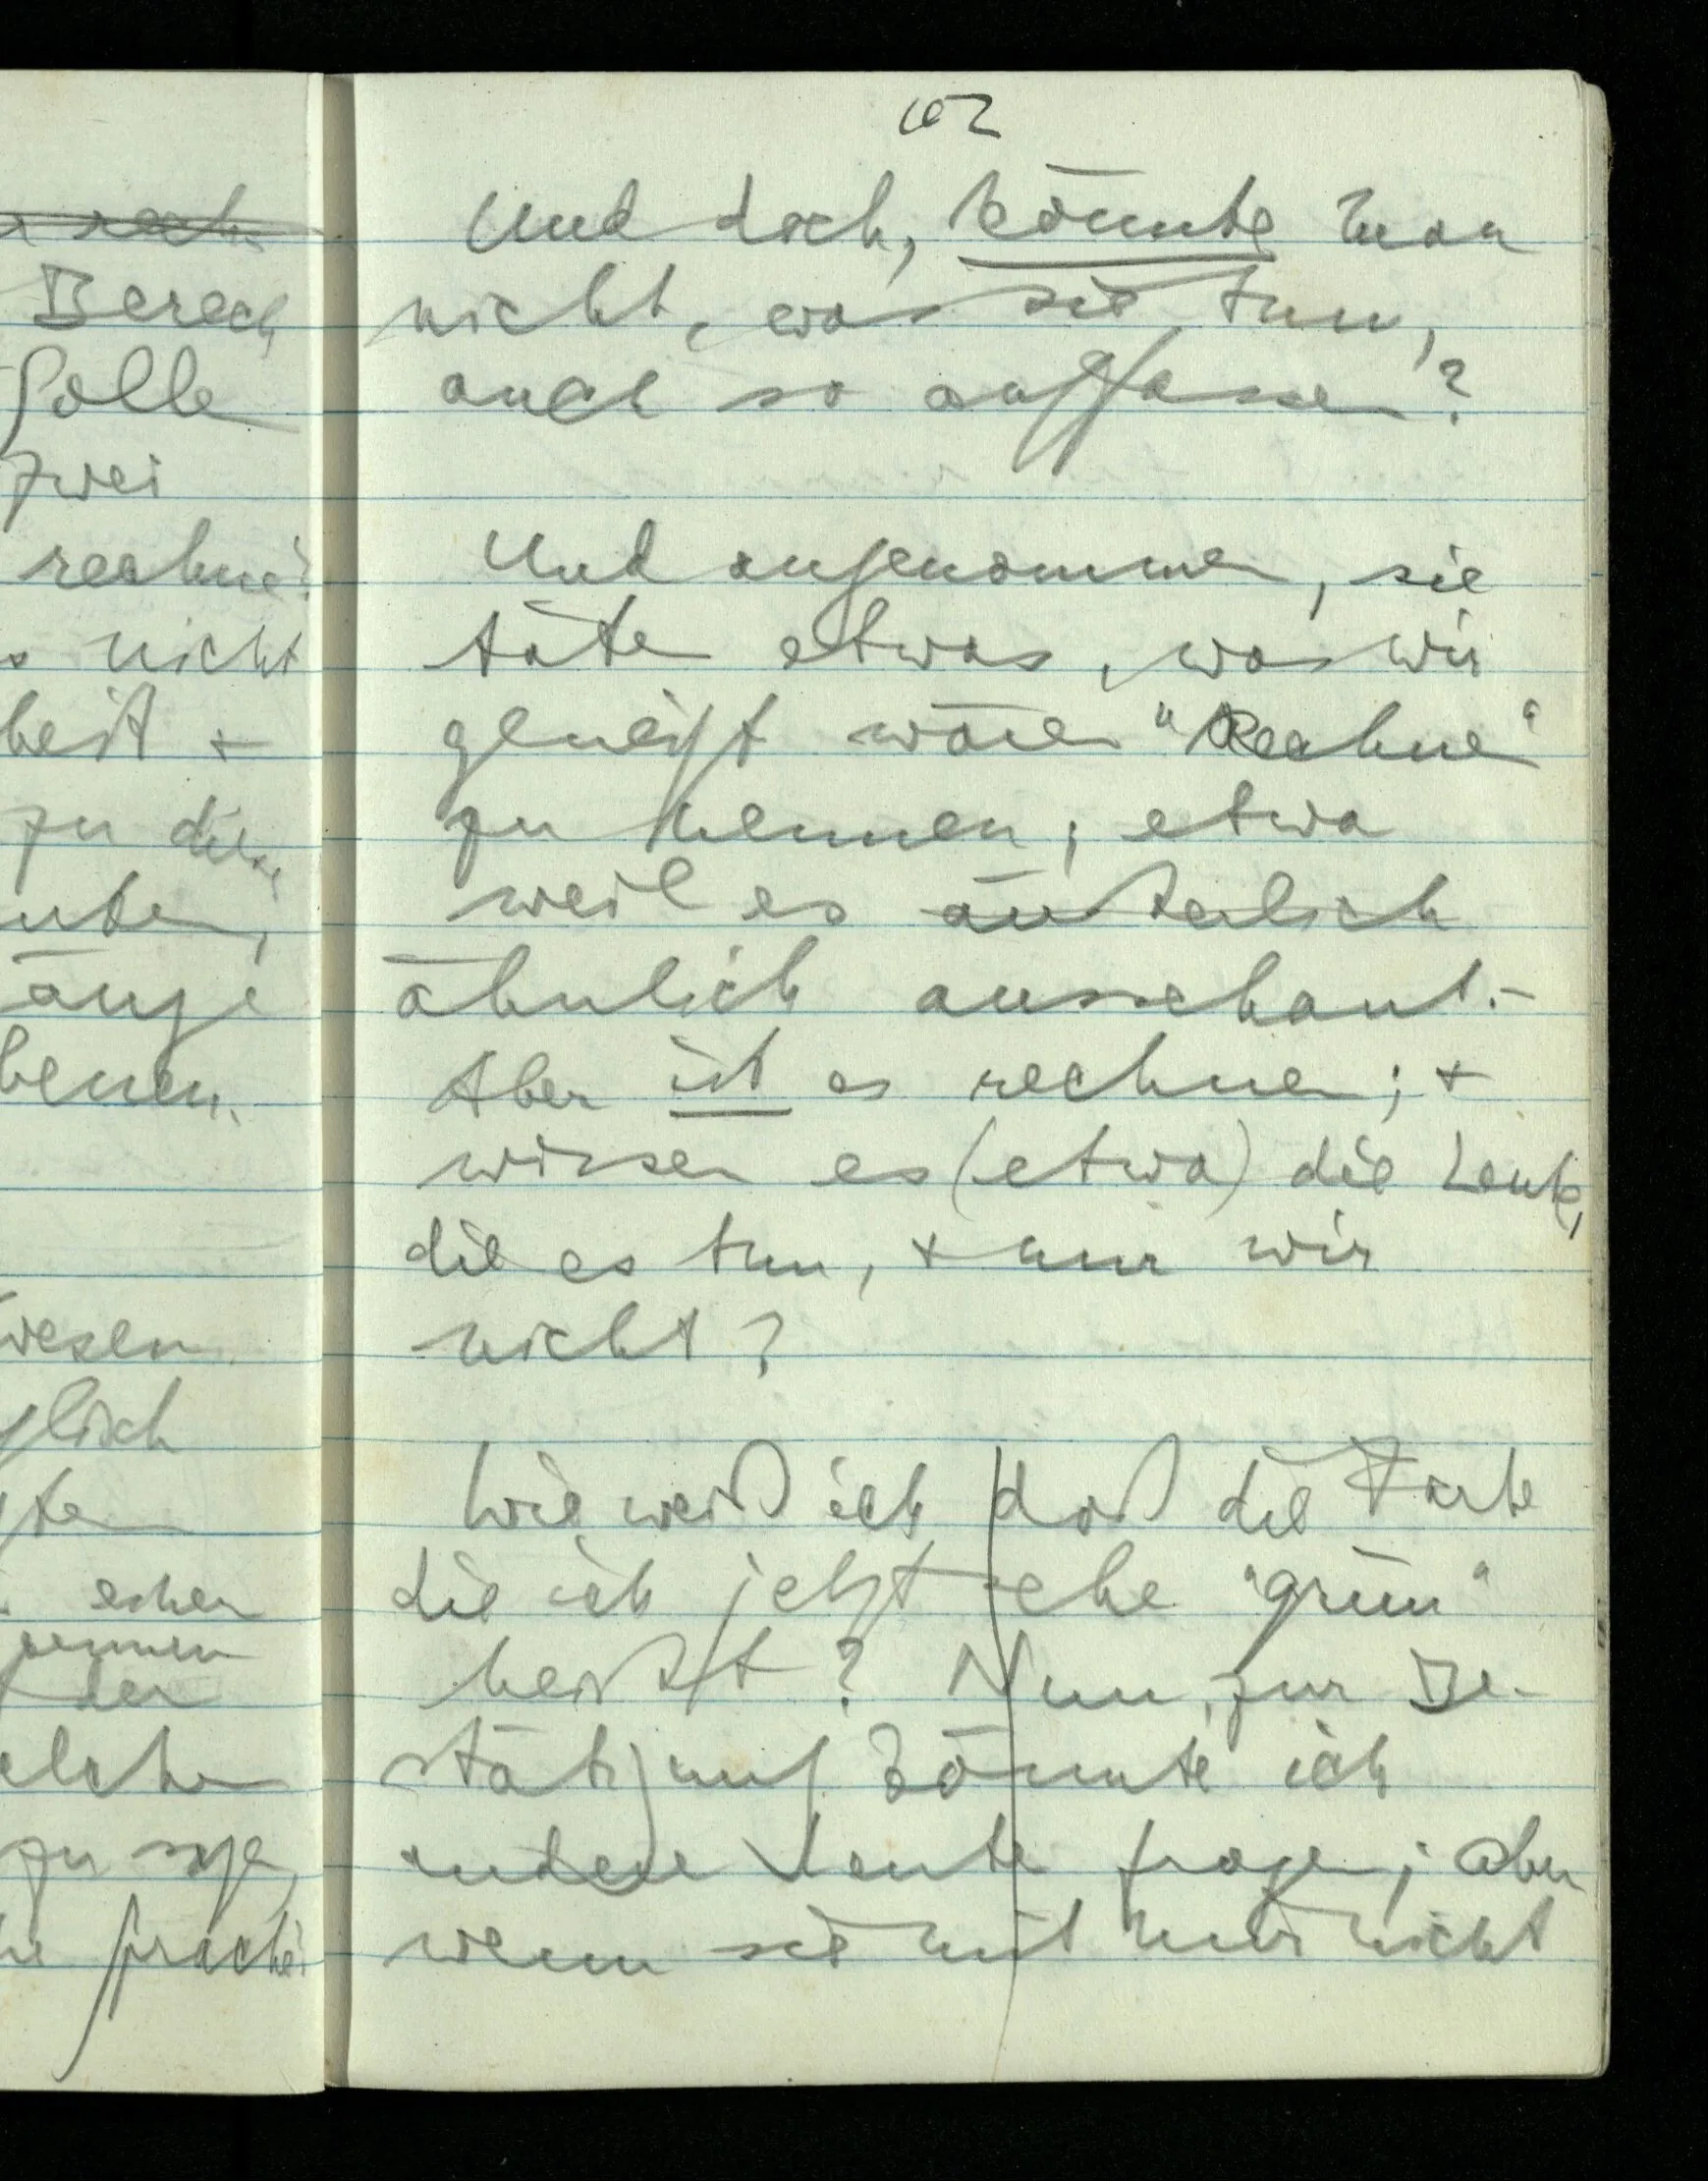 rech
Berech
Solle
zwei
rechne
nicht
heit +
zu diese
nten,
änge
benen.
wesen
glich
ten
esher
nennen
der
elche
zu sage,
he sprache
102
Und doch, könnte man
nicht, was sie tun,
auch so auffassen?
Und angenommen, sie
täten etwas, was wir
geneigt wären "Rechnen"
zu nennen; etwa
weil es äußerlich
ähnlich ausschaut. –
Aber ist es rechnen; +
wissen es (etwa) die Leute,
die es tun, + nur wir
nicht?
Wie weiß ich daß die Farbe
die ich jetzt sehe "grün"
heißt? Nun, zur Be-
stätigung könnte ich
andere Leute fragen; aber
wenn sie mit mir nicht